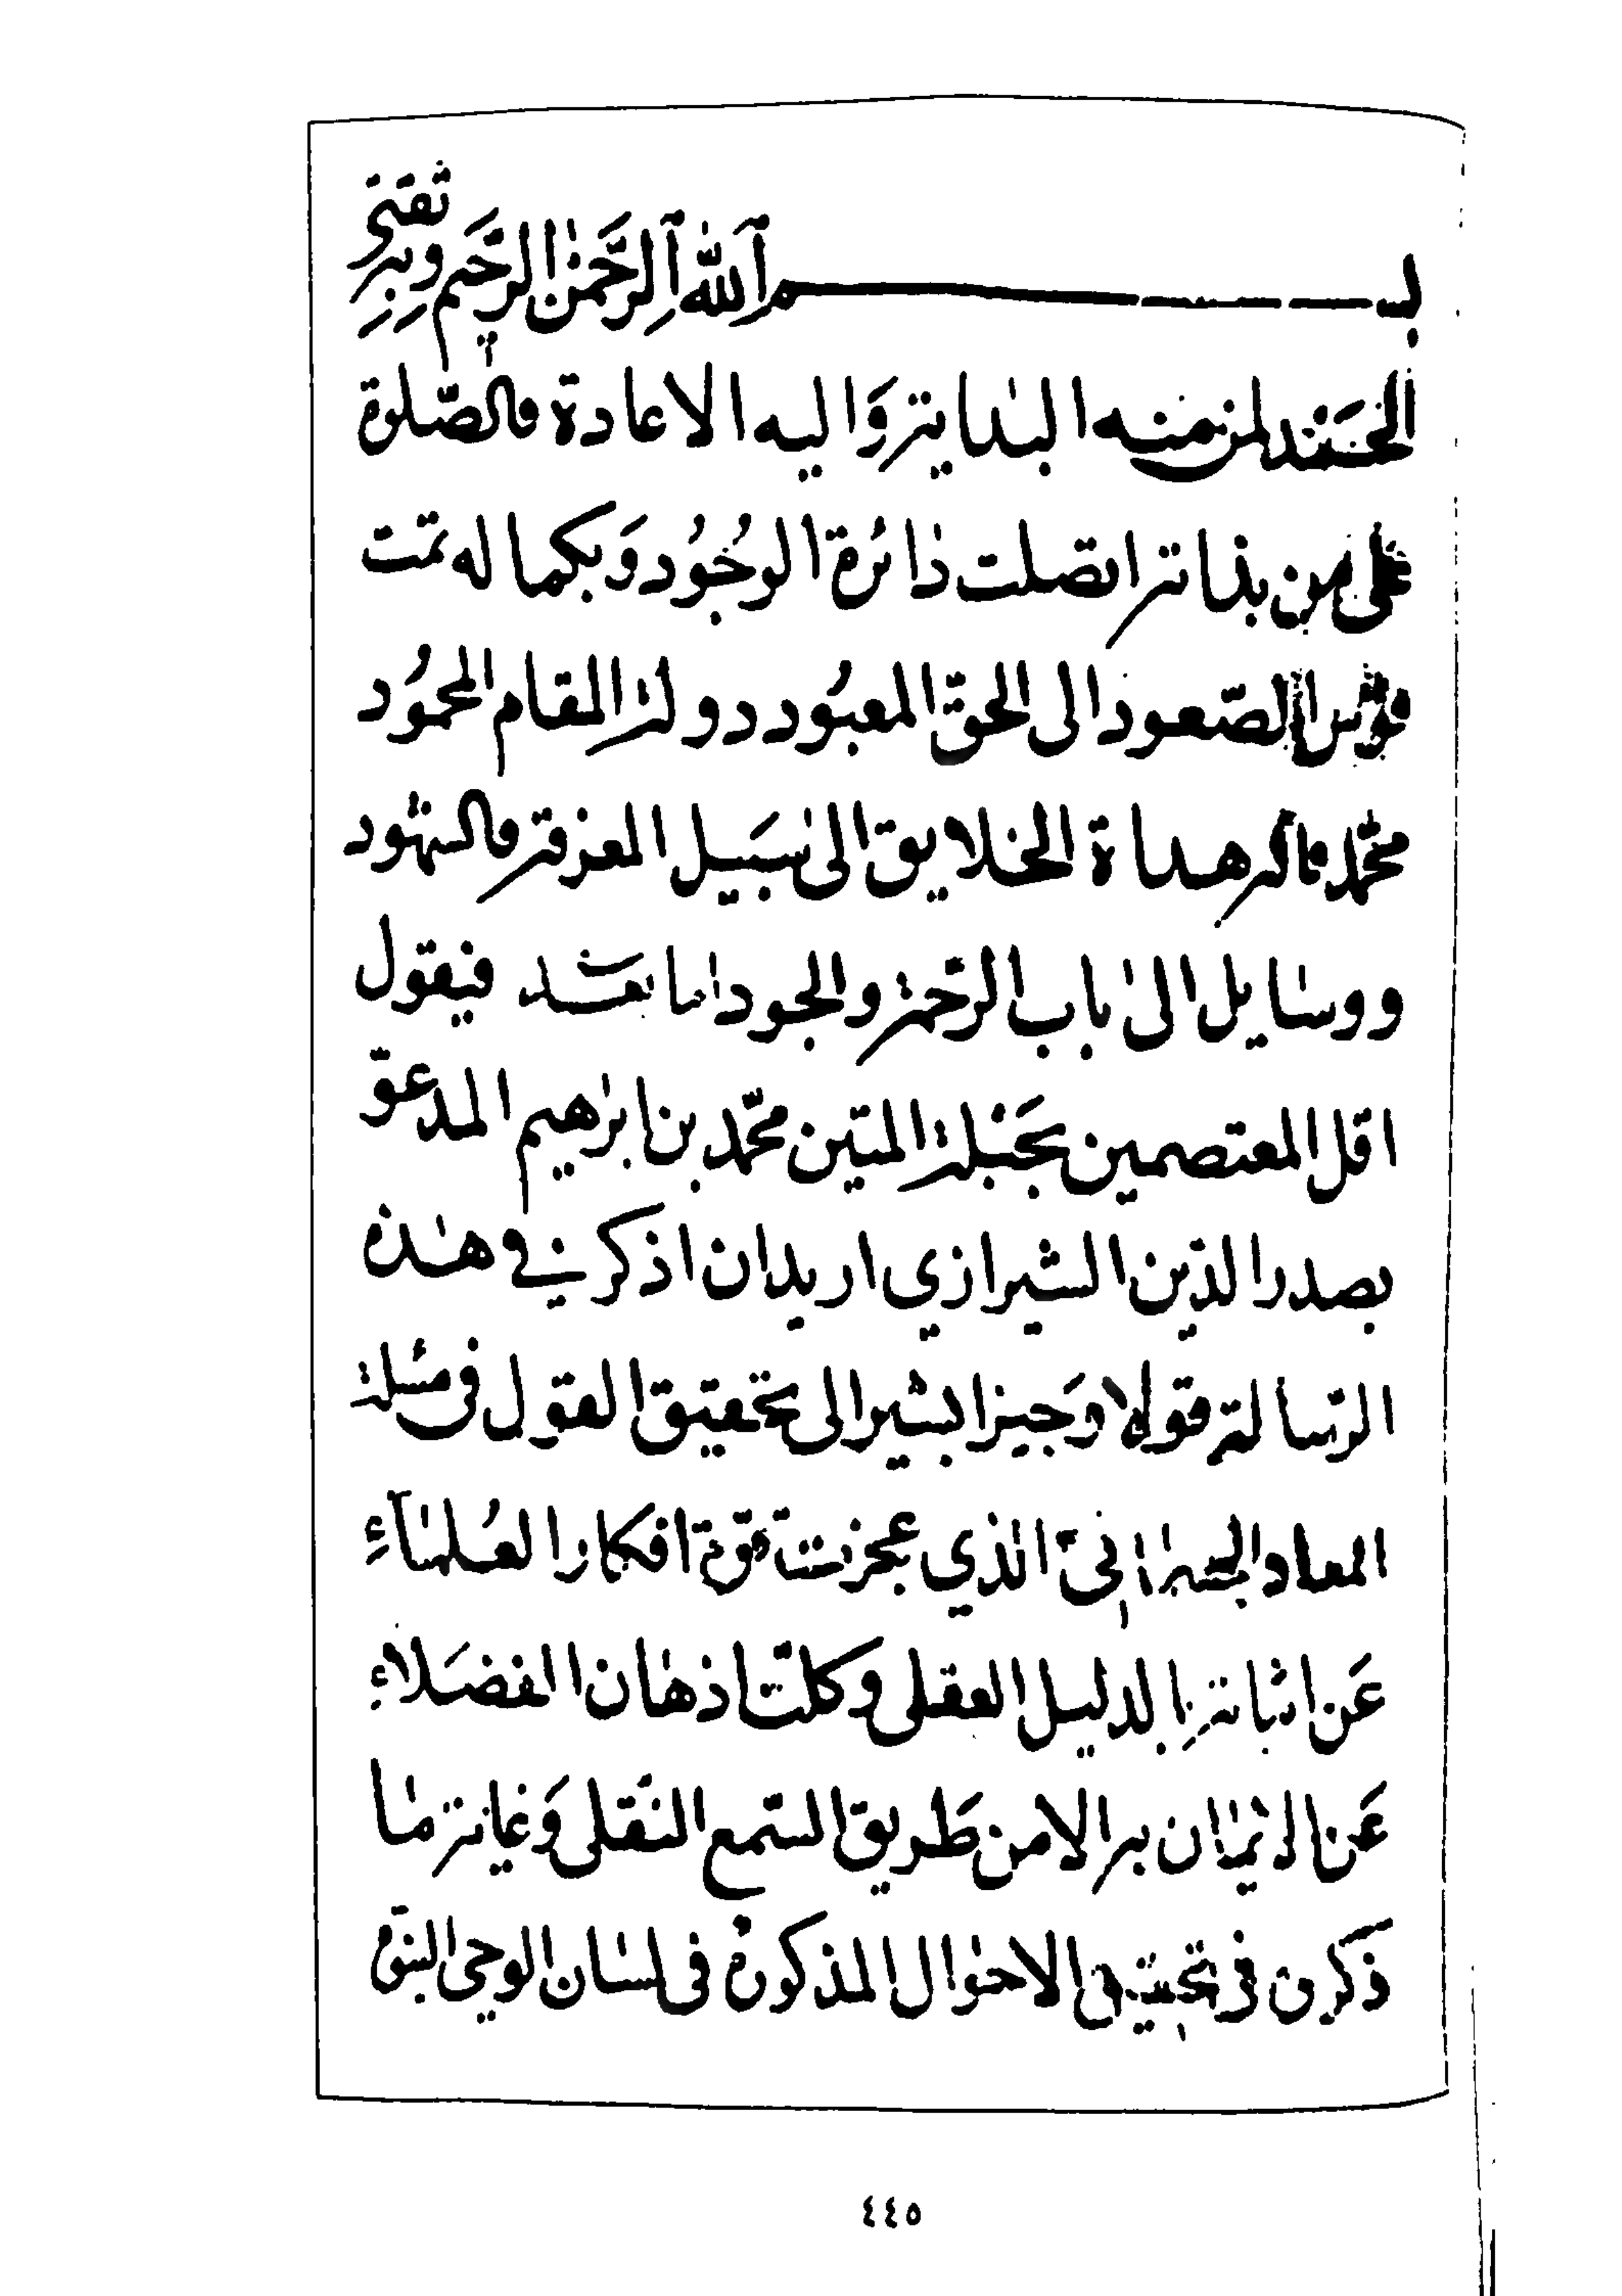 بسم الله الرحمن الرحيم وبه ثقتي
الحمد لمن منه البداية واليه الاعادة والصلوة
على من بذاته اتصلت دائرة الوجود وبكماله تمت
قوس الصعود الى الحق المعبود ذو له المقام المحمود
محمد وآله هداة الخلايق الى سبيل المعرفة والشهود
ووسايل الى باب الرحمة والجود اما بعد فيقول
اقل المعتصمين بحبله المتين محمد بن ابرهيم المدعو
بصدر الدين الشيرازي اريد ان اذكر في هذه
الرسالة قولا وجيزا يشير الى تحقيق القول في مسئلة
المعاد الجسماني الذي عجزت قوة افكار العلماء
عن اثباته بالدليل العقلي وكلت اذهان الفضلاء
عن الايمان به الا من طريق السمع النقلي وغاية ما
ذكره في تحقيق الاحوال المذكورة في لسان الوحي النبوة
٤٤٥